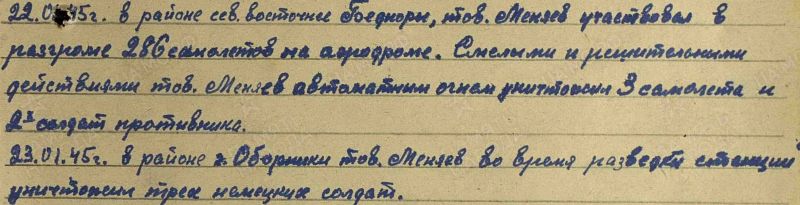 22.01.45г. в районе сев. восточнее Бедноры, тов. Меняев участвовал в
разгроме 286 самолетов на аэродроме. Смелыми и решительными
действиями тов. Меняев автоматным огнем уничтожил 3 самолета и
2х солдат противника.
23.01.45г. в районе г. Оборники тов. Меняев во время разведки станции
уничтожил трех немецких солдат.